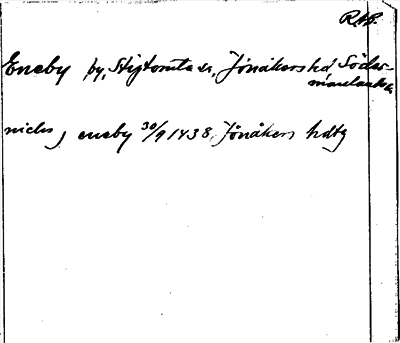 RAP.
Eneby by, Stigtomta sn, Jönåkers hd Söder-
manlands l.
niclis j eneby 30/9 1438, Jönåkers hdtg